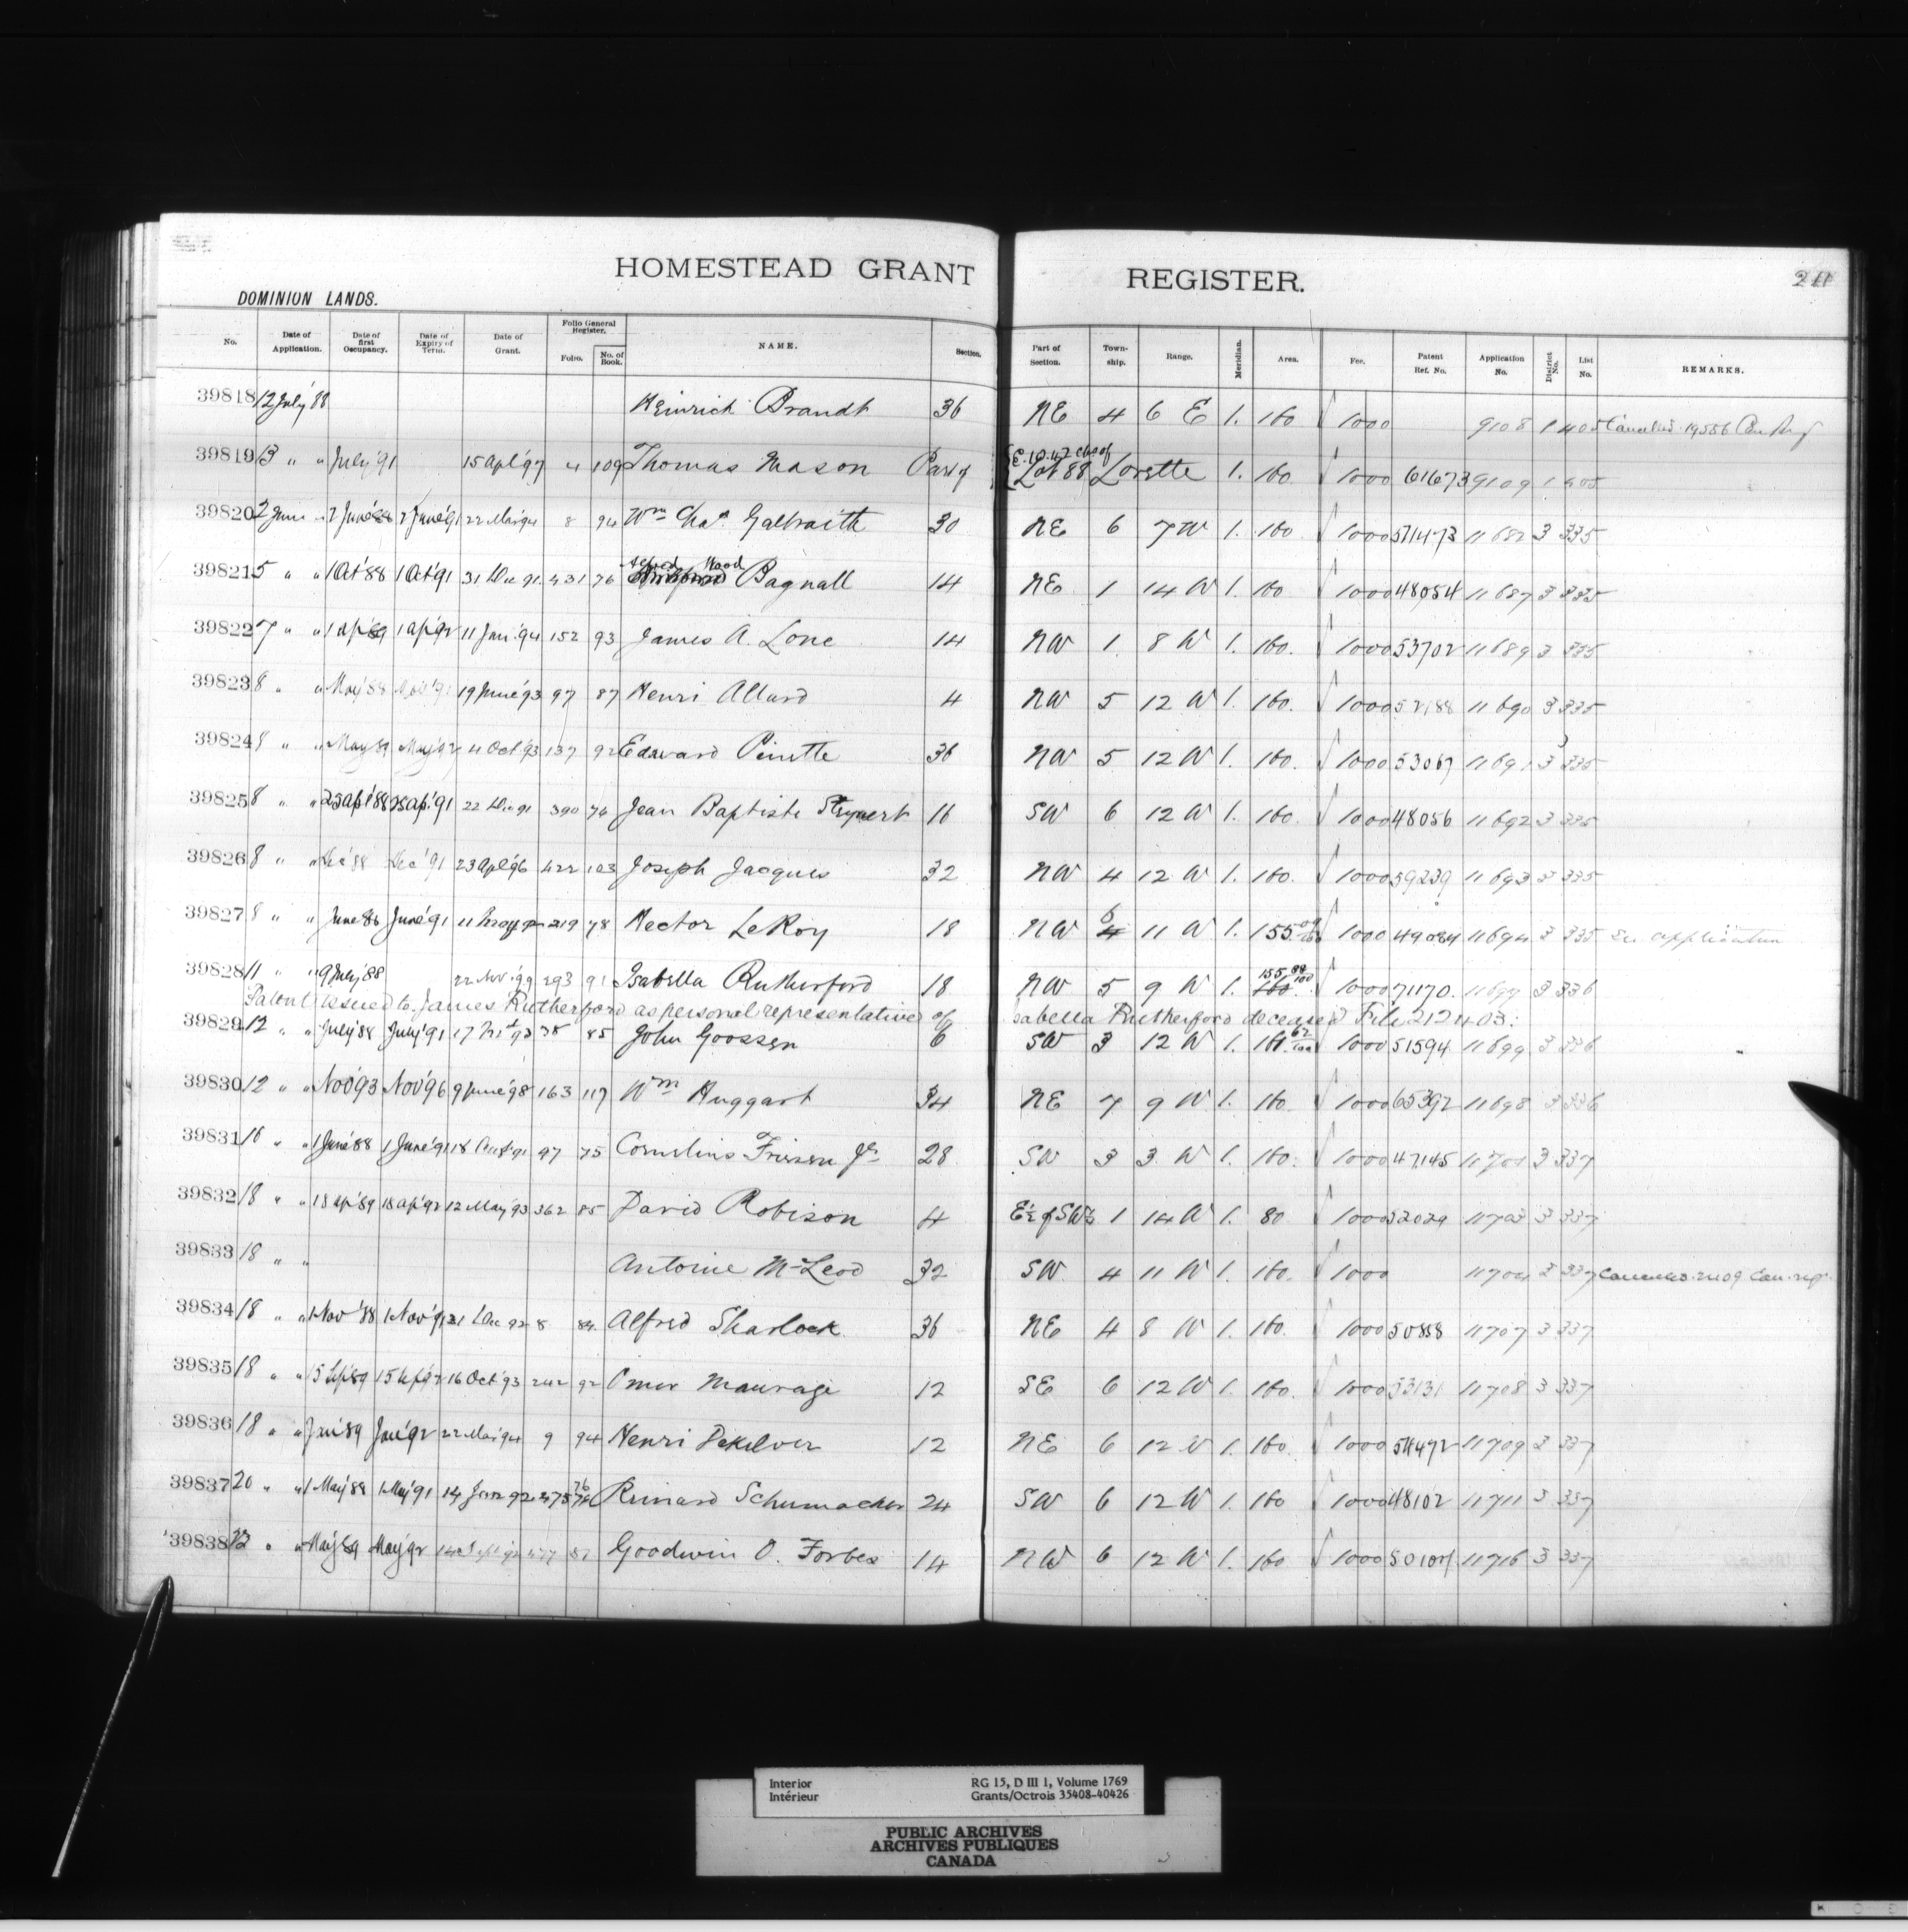 HOMESTEAD GRANT REGISTER.
DOMINION LANDS.
No. Date of Application. Date of first Occupancy. Date of Expiry of Term. Date of Grant. Folio General Register. Folio. No. of Book. NAME. Section. Part of Section. Town-ship. Range. Meridian. Area. Fee. Patent Ref. No. Application No. District No. List No. REMARKS.
39818 12 July '88 Heinrich Brandt 36 NE 4 6 E 1. 160 1000 9108 1 405 Cancelled 19556
39819 13 " " July '91 15 Apl '97 4 109 Thomas Mason Part of Lot 88 Lorette 1. 160 1000 61673 9109 1 405
39820 2 June " 2 June '88 2 June '91 22 Mar '94 8 94 Wm Chas. Galbraith 30 NE 6 7 W 1. 160 1000 11682 3 335
39821 5 " " 1 Oct '88 1 Oct '91 31 Dec 91 431 76 Alfred Hood Bagnall 14 NE 1 14 W 1. 160 1000 48054 11687 3 335
39822 7 " " 1 Ap '89 1 Ap '92 11 Jan '94 152 93 James A. Lone 14 NW 1 8 W 1. 160. 1000 53702 11689 3 335
39823 8 " " May '88 19 June '93 97 87 Henri Allard 4 NW 5 12 W 1. 160. 1000 52188 11690 3 335
39824 8 " " May 89 May '92 4 Oct '93 137 92 Edward Pinette 36 NW 5 12 W 1. 160. 1000 53067 11691 3 335
39825 8 " " 25 Apl '88 25 Ap. '91 22 Dec 91 390 76 Jean Baptiste 16 SW 6 12 W 1. 160. 1000 48056 11692 3 335
39826 8 " " Dec '88 Dec '91 23 Apl '96 422 103 Joseph Jacques 32 NW 4 12 W 1. 160. 1000 59239 11693 3 335
39827 8 " " June 88 June '91 11 May 92 219 78 Hector LeRoy 18 NW 5 11 W 1. 155 09/100 1000 49084 11694 3 335 See application
39828 11 " " 9 July '88 22 Nov. '99 293 91 Isabella Rutherford 18 NW 5 9 W 1. 155 88/100 160. 1000 71170. 11697 3 336
Patent issued to James Rutherford as personal representative of Isabella Rutherford deceased File 212403.
39829 12 " " July '88 July '91 38 85 John Goossen 6 SW 3 12 W 1. 161. 62/100 1000 51594 11699 3 336
39830 12 " " Nov '93 Nov '96 9 June '98 163 117 Wm Huggart 34 NE 7 9 W 1. 160. 1000 65392 11698 3 336
39831 16 " " 1 June '88 1 June '91 97 75 Cornelius Friesen Jr 28 SW 3 3 W 1. 160. 1000 47145 11701 3 337
39832 18 " " 18 Ap '89 18 Ap '92 12 May '93 362 85 David Robison 4 E½ of SW¼ 1 14 W 1. 80 1000 52029 11703 3 337
39833 18 " " Antoine McLeod 32 SW 4 11 W 1. 160. 1000 11704 3 337 Cancelled 21109 Can. reg.
39834 18 " " 1 Nov '88 1 Nov '91 21 Dec 92 8 84 Alfred Sharlock 36 NE 4 8 W 1. 160. 1000 50858 11707 3 337
39835 18 " " 15 Sep '89 15 Sep '92 16 Oct '93 242 92 Omer Maurage 12 SE 6 12 W 1. 160. 1000 53131 11708 3 337
39836 18 " " Jan '89 Jan '92 22 Mar '94 9 94 Henri Dekelver 12 NE 6 12 W 1. 160. 1000 54472 11709 3 337
39837 20 " " 1 May '88 1 May '91 14 Jan 92 475 76 Reinard Schumacher 24 SW 6 12 W 1. 160 1000 48102 11711 3 337
39838 " " May '89 May '92 14 Sept '92 477 81 Goodwin O. Forbes 14 NW 6 12 W 1. 160 1000 11716 3 337
Interior RG 15, D III 1, Volume 1769
Intérieur Grants/Octrois 35408-40426
PUBLIC ARCHIVES
ARCHIVES PUBLIQUES
CANADA